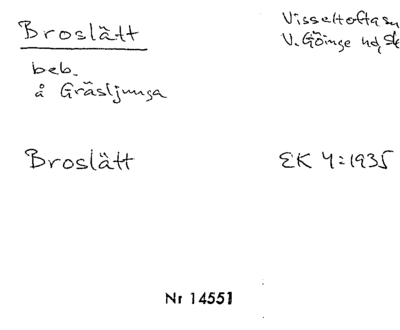 Broslätt
Visseltofta sn
V. Göinge hd, Sk
beb.
å Gräsljunga
Broslätt
EK 4:1935
Nr 14551